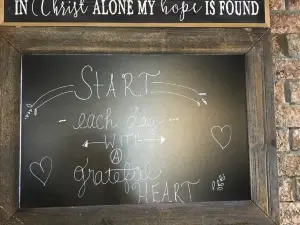 IN Christ ALONE MY hope IS FOUND
START
each day
WITH
A
grateful
HEART